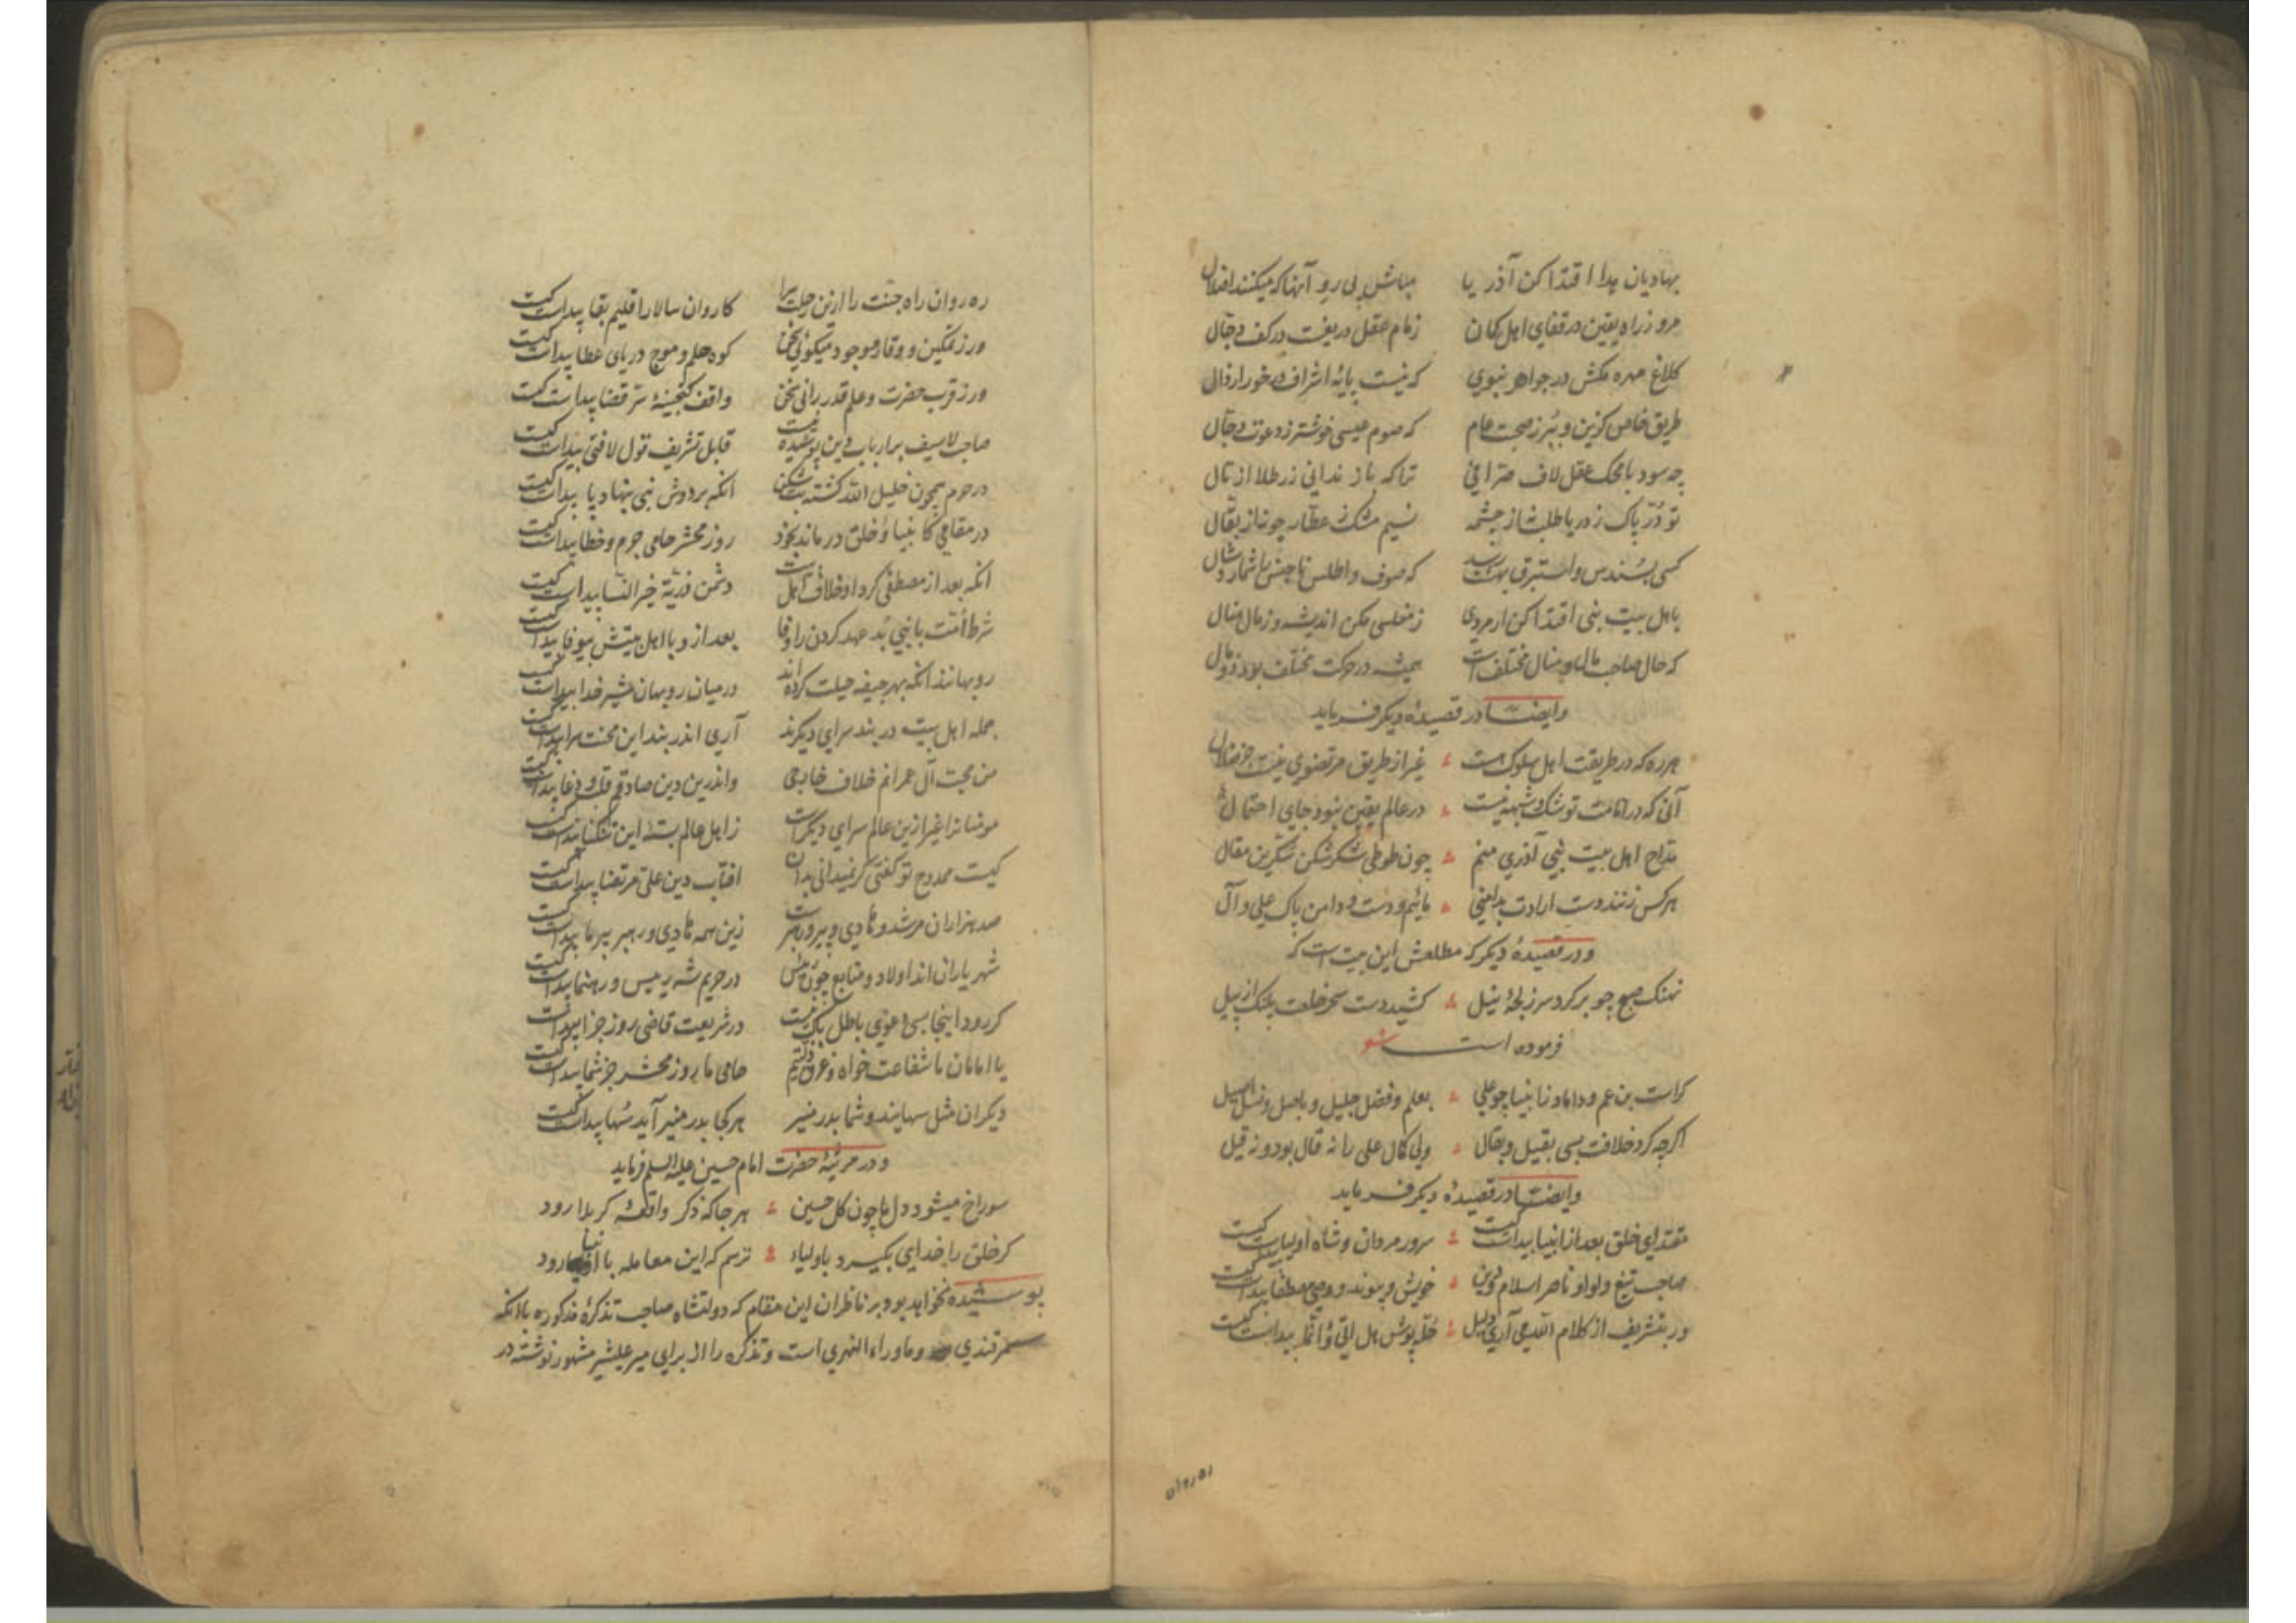 بهادیان هدا اقتدا کن آذریا مباش پی رو آنها که میکنند اضلال
مرو ز راه یقین در قفای اهل کمان زمام عقل دریغست در کف دجال
کلاغ مهره مکش در جواهر نبوی که نیست پایهٔ اشراف در خور ارذال
طریق خاص کزین و ببر ز صحبت عام که صوم عیسی خوشتر ز دعوت دجال
چه سود با محک عقل لاف صرافی ترا که باز ندانی زر طلا از تال
تو در پاک ز دریا طلب نه از چشمه نسیم مشک ز عطار جو نه از بقال
کسی بسندس و استبرق بهشت رسید که صوف و اطلس
باهل بیت نبی اقتدا کن ار مردی ز مفلسی مکن اندیشه وز مال منال
که حال صاحب مال و منال مختلف است همیشه در حرکت مختلف بود ذو مال
وایضا در قصیدهٔ دیکر فرماید
هر ره که در طریقت اهل سلوک هست غیر از طریق مرتضوی نیست جز ضلال
آنی که در امامت تو شک و شبهه نیست در عالم یقین نبود جای احتمال
مداح اهل بیت نبی آذری منم چون طوطی شکرشکن شکرین مقال
هر کس زنند دست ارادت بدامنی مائیم و دست و دامن پاک علی و آل
و در قصیدهٔ دیکر که مطلعش این بیت است که
نهنک صبح چو بر کرد سر ز لجهٔ نیل کشید دست سحر خلعت پلنک از پیل
فرموده است شعر
کراست بن عم و داماد ز انبیا چو علی بعلم و فضل جلیل و باصل و نسل اصیل
اکرچه کرد خلافت بسی بقیل و بقال ولی کمال علی را نه قال بود و نه قیل
وایضا در قصیدهٔ دیکر فرماید
مقتدای خلق بعد از انبیا پیداست کیست سرور مردان و شاه اولیا پیداست کیست
صاحب تیغ و لوا و ناصر اسلام و دین خویش و پیوند و وصی مصطفا پیداست کیست
ور بتشریف از کلام الله می آری دلیل حله پوش هل اتی و انما پیداست کیست
ره روان
ره روان راه جنت را ازین کاروان سالار اقلیم بقا پیداست کیست
ور ز تمکین و وقار و جود میکوئی سخن کوه حلم و موج دریای عطا پیداست کیست
ور ز قرب حضرت و علم قدر رانی سخن واقف کنجینهٔ سر قضا پیداست کیست
صاحب لاسیف بر ارباب دین پوشیده نیست قابل تشریف قول لا فتی پیداست کیست
در حرم همچون خلیل الله کشته بت شکن انکه بر دوش نبی بنهاد پا پیداست کیست
در مقامی کانبیا و خلق درماند بخود روز محشر حامی جرم و خطا پیداست کیست
انکه بعد از مصطفی کرد او خلاف اهل بیت دشمن ذریهٔ خیر النسا پیداست کیست
شرط امت با نبی بد عهد کردن را وفا بعد از و با اهل بیتش بیوفا پیداست کیست
روبهانند انکه بهر جیفه حیلت کرده اند در میان روبهان شیر خدا پیداست کیست
جمله اهل بیت در بند سرای دیکرند آری اندر بند این محنت سرا پیداست کیست
من محب آل عمرانم خلاف خارجی واندرین دین صادق و قلب و دغا پیداست کیست
مومنانرا غیر ازین عالم سرای دیکر است ز اهل عالم بستهٔ این تنکنا پیداست کیست
کیست ممدوح تو کفتی کر نمیدانی بدان افتاب دین علی مرتضا پیداست کیست
صد هزاران مرشد و هادی و پیر و رهبرست زین همه هادی و رهبر پیر ما پیداست کیست
شهریاران اند اولاد و متابع چون در حریم شه رئیس و رهنما پیداست کیست
کر رود اینجا بسی دعوی باطل باک نیست در شریعت قاضی روز جزا پیداست کیست
یا امامان ما شفاعت خواه و غرق ذلتیم حامی ما روز محشر جز شما پیداست کیست
دیکران مثل سهایند و شما بدر منیر هر کجا بدر منیر آید سها پیداست کیست
و در مرثیهٔ حضرت امام حسین علیه السلم فرماید
سوراخ میشود دل ما چون کل حسین هر جا که ذکر واقعهٔ کربلا رود
کر خلق را خدای بکیرد باولیاء ترسم که این معامله با انبیا رود
پوشیده نخواهد بود بر ناظران این مقام که دولتشاه صاحب تذکرهٔ مذکوره با انکه
سمرقندی و ماوراء النهری است و تذکره را از برای میر علیشیر مشهور نوشته در